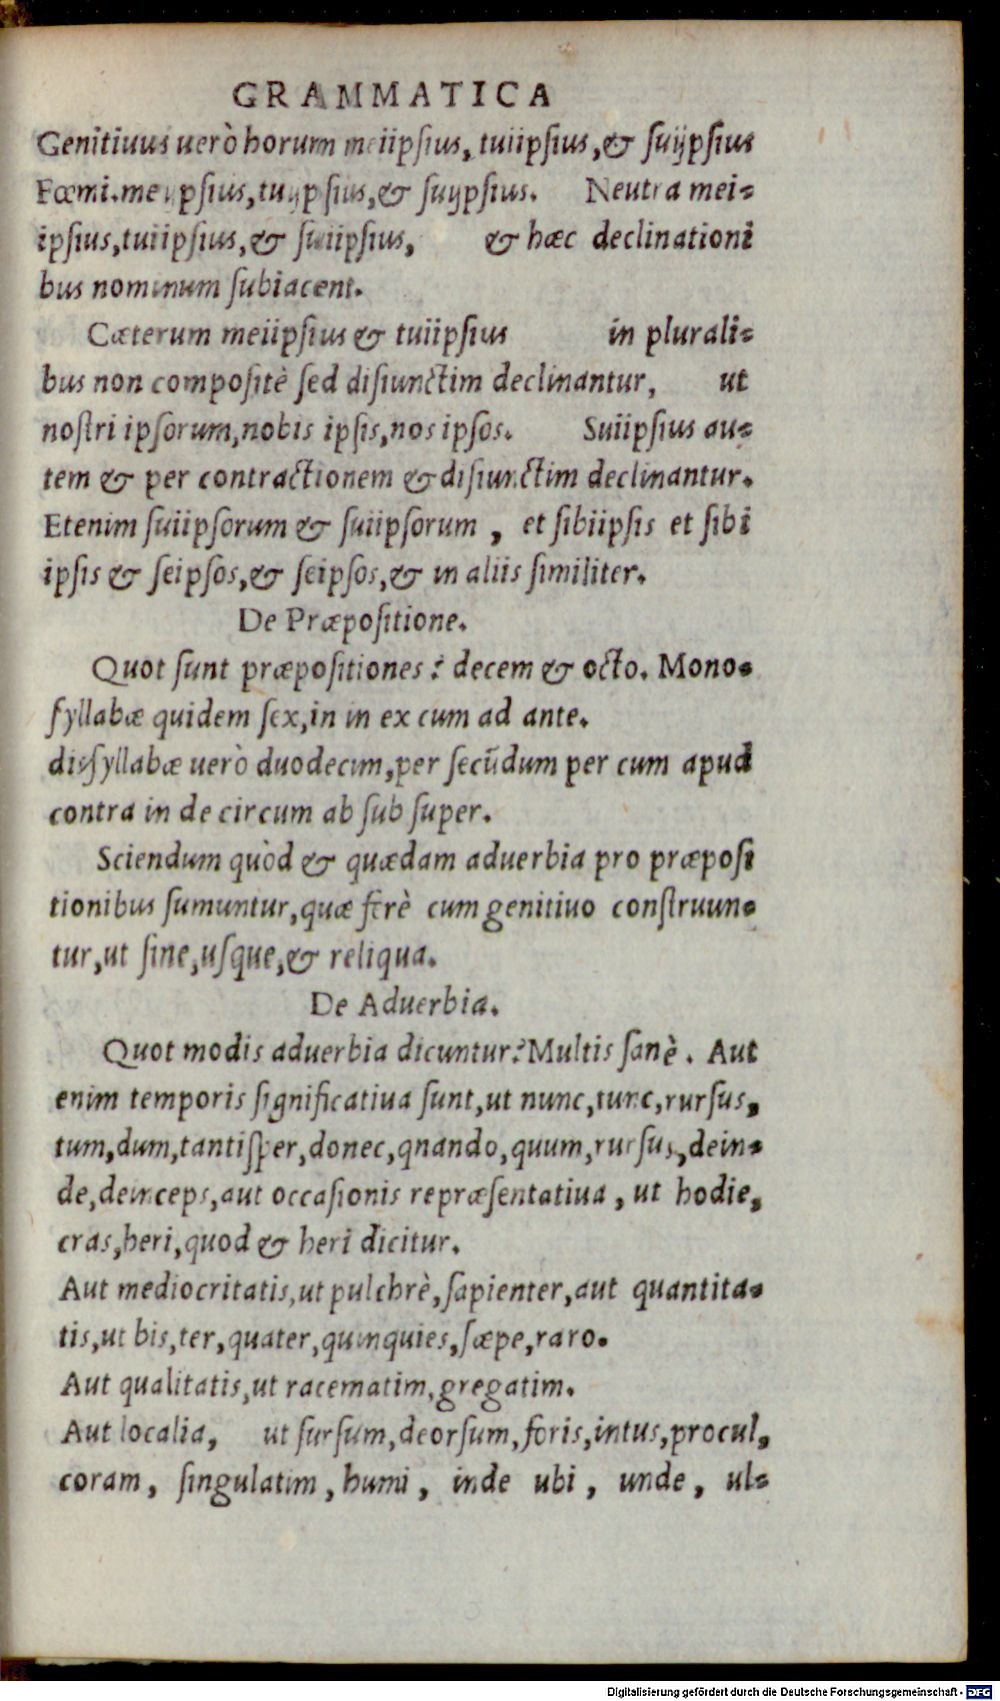 GRAMMATICA
Genitiuus uerò horum meiipſius, tuiipſius,& ſuijpſius
Fœmi.meijpſius,tuijpſius,& ſuijpſius. Neutra mei-
ipſius,tuiipſius,& ſuiipſius, & hæc declinationi
bus nominum ſubiacent.
Cæterum meiipſius & tuiipſius in plurali-
bus non compoſitè ſed diſiunctim declinantur, ut
noſtri ipſorum,nobis ipſis,nos ipſos. Suiipſius au-
tem & per contractionem & diſiunctim declinantur.
Etenim ſuiipſorum & ſuiipſorum , et ſibiipſis et ſibi
ipſis & ſeipſos,& ſeipſos,& in aliis ſimiliter.
De Præpoſitione.
Quot ſunt præpoſitiones? decem & octo. Mono-
ſyllabæ quidem ſex,in in ex cum ad ante.
disſyllabæ uerò duodecim,per ſecūdum per cum apud
contra in de circum ab ſub ſuper.
Sciendum quòd & quædam aduerbia pro præpoſi
tionibus ſumuntur,quæ ferè cum genitiuo conſtruun-
tur,ut ſine,uſque,& reliqua.
De Aduerbia.
Quot modis aduerbia dicuntur?Multis ſanè. Aut
enim temporis ſignificatiua ſunt,ut nunc,tunc,rurſus,
tum,dum,tantiſper,donec,qnando,quum,rurſus,dein-
de,deinceps,aut occaſionis repræſentatiua, ut hodie,
cras,heri,quod & heri dicitur.
Aut mediocritatis,ut pulchrè,ſapienter,aut quantita-
tis,ut bis,ter,quater,quinquies,ſæpe,raro.
Aut qualitatis,ut racematim,gregatim.
Aut localia, ut ſurſum,deorſum,foris,intus,procul,
coram, ſingulatim, humi, inde ubi, unde, ul-
Digitalisierung gefördert durch die Deutsche Forschungsgemeinschaft - DFG